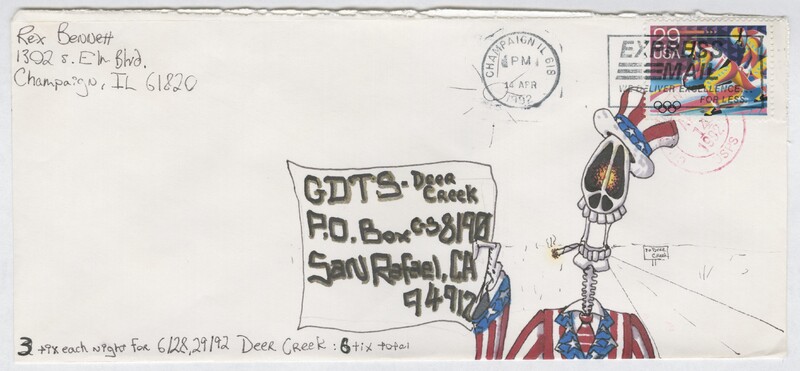 Rex Bennett
1302 S. Elm Blvd.
Champaign, IL 61820
CHAMPAIGN IL 618
PM
14 APR
1992
EXPRESS
MAIL
WE DELIVER EXCELLENCE...
FOR LESS.
29
USA
GDTS - Deer
Creek
P.O. Box GS 8190
San Rafael, CA
94912
To Deer
Creek
3 tix each night for 6/28,29/92 Deer Creek : 6 tix total